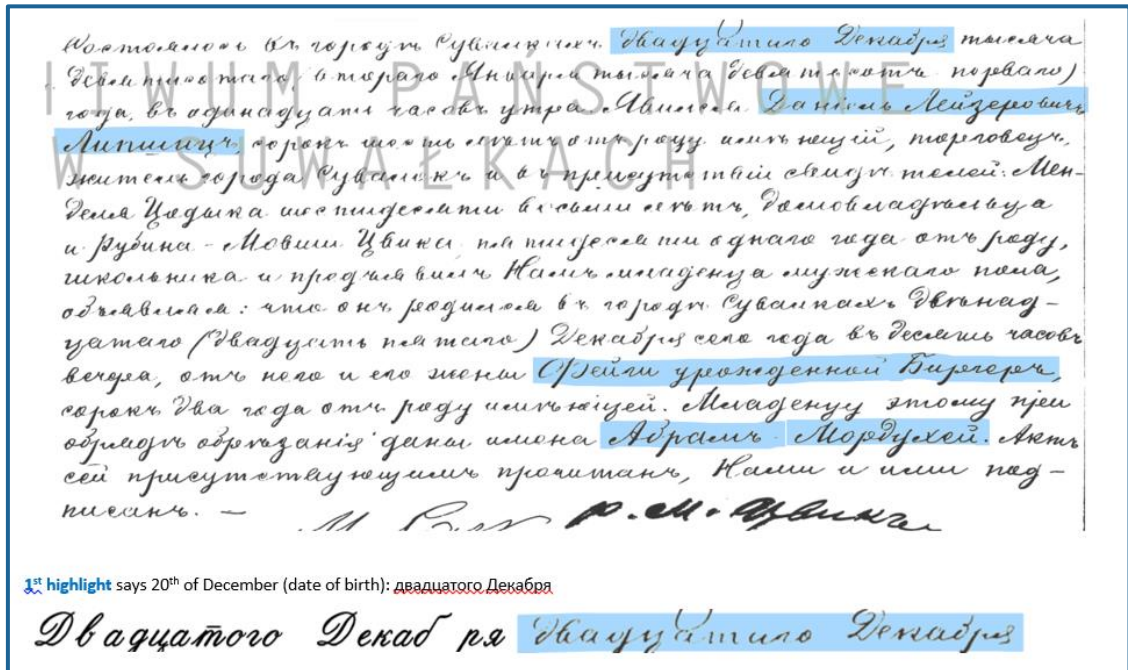 Состоялось въ городѣ Сувалкахъ двадцатого Декабря тысяча
девятисотаго (втораго Января тысяча девятьсотъ перваго)
года, въ одинадцать часовъ утра. Явился Даніель Лейзеровичъ
Липшицъ, сорокъ шесть лѣтъ отъ роду имѣющій, торговецъ,
житель города Сувалокъ и въ присутствіи свидѣтелей: Мен-
деля Цадыка шестидесяти восьми лѣтъ, домовладѣльца
и Рубина-Мовши Цвика пятидесяти однаго года отъ роду,
школьника и предъявилъ Намъ младенца мужскаго пола,
объявляя: что онъ родился въ городѣ Сувалкахъ двѣнад-
цатаго (двадцать пятаго) Декабря сего года въ десять часовъ
вечера, отъ него и его жены Фейги урожденной Бергеръ,
сорокъ два года отъ роду имѣющей. Младенцу этому при
обрядѣ обрѣзанія даны имена Абрамъ Мордухей. Актъ
сей присутствующимъ прочитанъ, Нами и ими под-
писанъ. —
Р. М. Цвикъ
IWUM PAŃSTWOWE
W SUWAŁKACH
1st highlight says 20th of December (date of birth): двадцатого Декабря
Двадцатого Декаб ря двадцатого Декабря